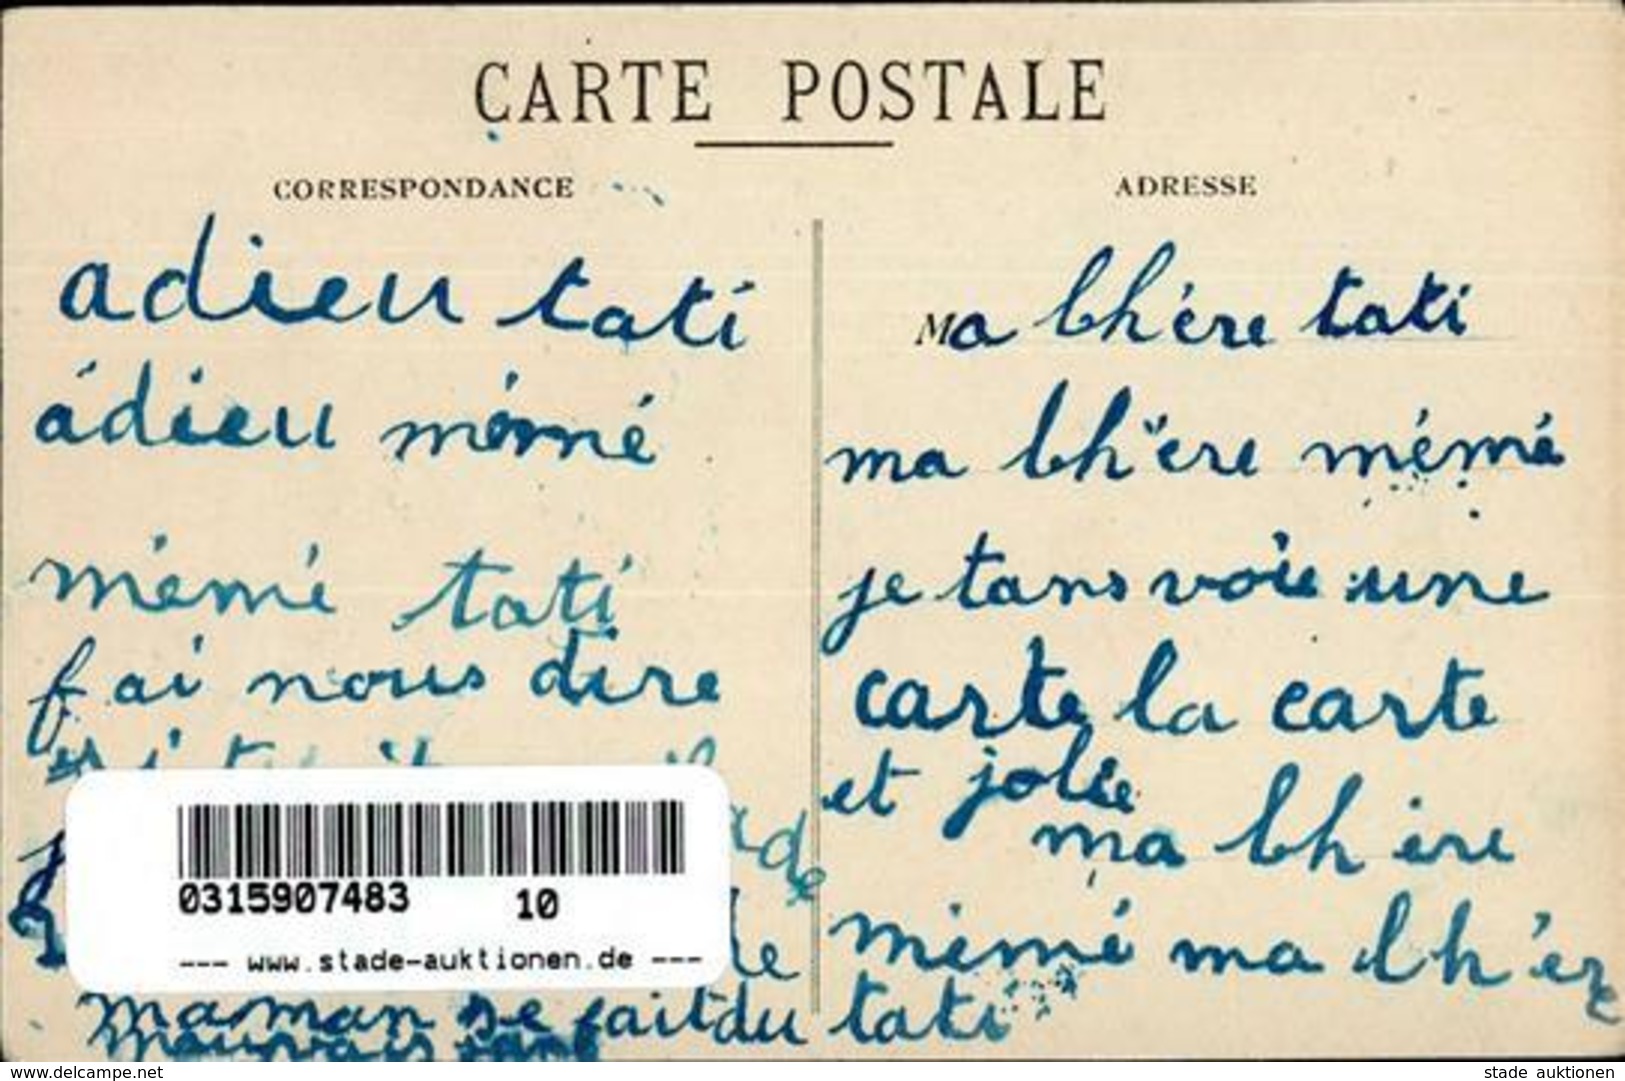 CARTE POSTALE
CORRESPONDANCE
adieu tati
adieu mémé
mémé tati
fai nous dire
maman se fait du
mauvais sang
ADRESSE
Ma bhére tati
ma bhére mémé
je tans voie une
carte la carte
et jolie
ma bhére
mémé ma bhére
tati
0315907483 10
--- www.stade-auktionen.de ---
www.delcampe.net
stade auktionen